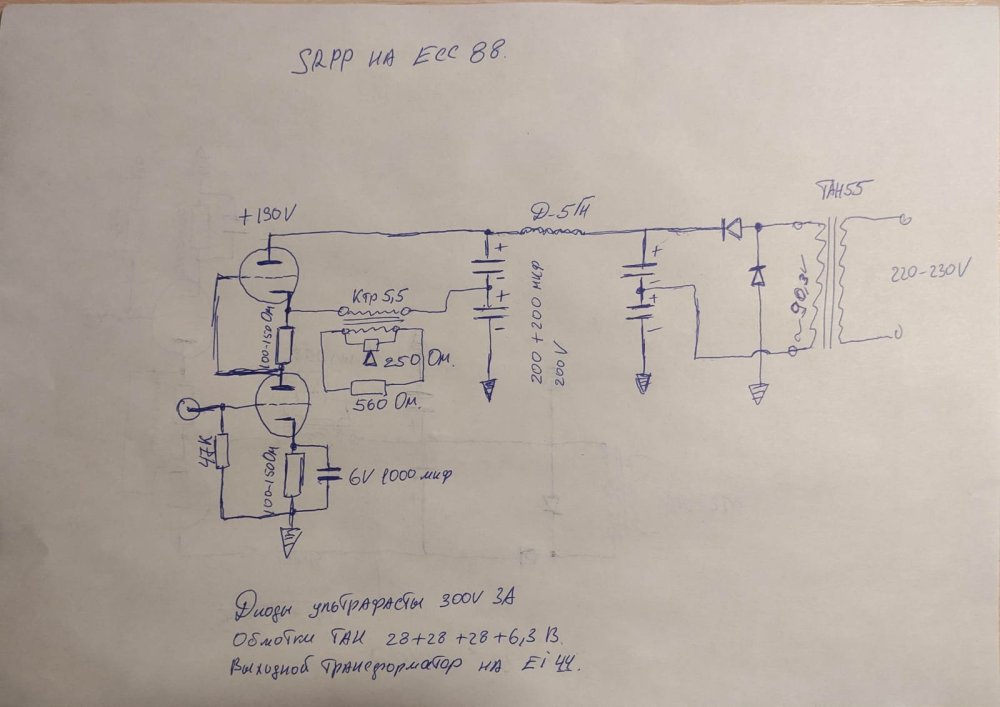 SRPP НА ECC 88.
ТАН55
+190V
Д-5Гн
220-230V
~90,3V
Ктр 5,5
200+200 мкф
200V
100-150 Ом
250 Ом.
560 Ом.
47К
100-150 Ом
6V 1000 мкф
Диоды ультрафасты 300V 3А
Обмотки ТАН 28+28+28+6,3 В.
Выходной трансформатор на Ei 44.